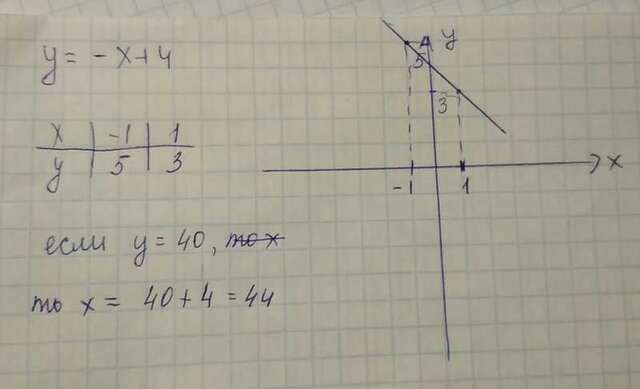 y = -x+4
x | -1 | 1
y | 5 | 3
если y = 40, то x
то x = 40+4 = 44
y
5
3
-1
1
x